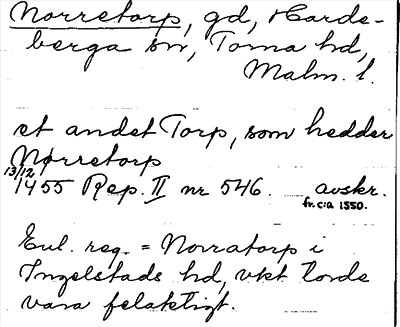 Norretorp, gd, Harde-
berga sn, Torna hd,
Malm. l.
et andet Torp, som hedder
Nørretorp
13/12 1455 Rep. II nr 546. avskr.
fr. c:a 1550.
Enl. reg. = Norratorp i
Ingelstads hd, vkt torde
vara felaktigt.